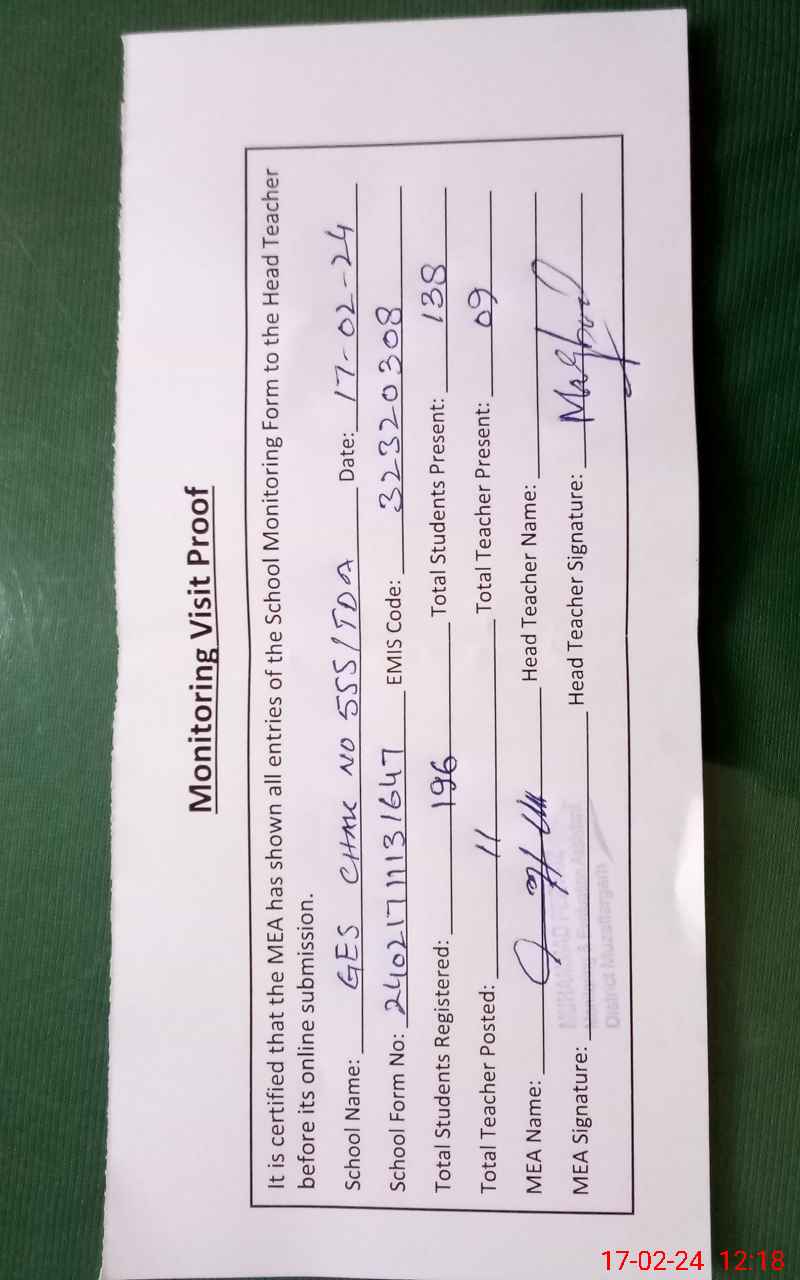 Monitoring Visit Proof
It is certified that the MEA has shown all entries of the School Monitoring Form to the Head Teacher
before its online submission.
School Name: GES CHAK NO 555/TDA Date: 17-02-24
School Form No: 240217111131647 EMIS Code: 32320308
Total Students Registered: 196 Total Students Present: 138
Total Teacher Posted: 11 Total Teacher Present: 09
MEA Name: Head Teacher Name:
MEA Signature: Head Teacher Signature:
MUHAMMAD
Monitoring & Evaluation Assistant
District Muzaffargarh
17-02-24 12:18